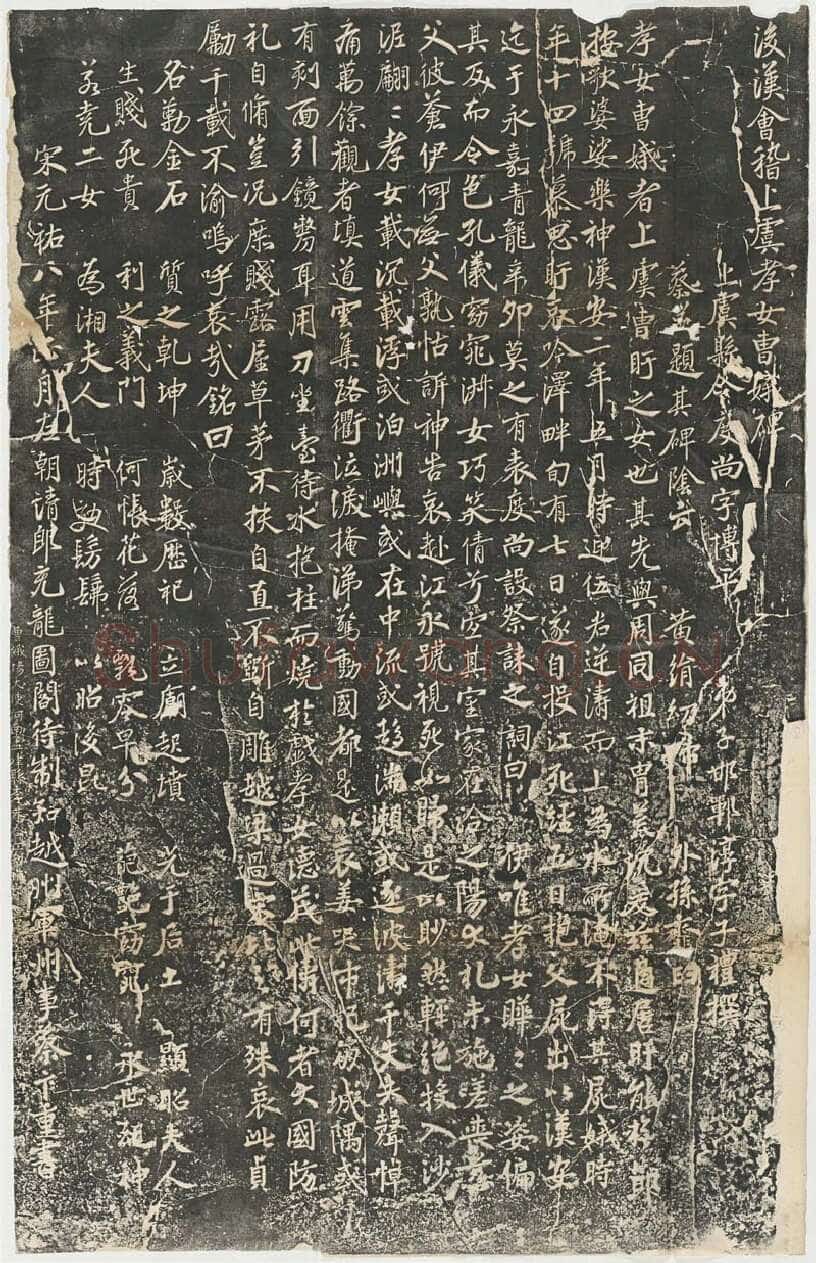 後漢會稽上虞孝女曹娥碑
上虞縣令度尚字博平 弟子邯鄲淳字子禮撰
蔡邕題其碑陰云 黃絹幼婦 外孫齏臼
孝女曹娥者上虞曹盱之女也其先與周同祖末胄荒沉爰茲適居盱能撫節
按歌婆娑樂神漢安二年五月時迎伍君逆濤而上為水所淹不得其屍娥時
年十四號慕思盱哀吟澤畔旬有七日遂自投江死經五日抱父屍出以漢安
迄于永嘉青龍辛卯莫之有表度尚設祭誄之詞曰 伊唯孝女曄〻之姿偏
其反而令色孔儀窈窕淑女巧笑倩兮宜其室家在洽之陽大礼未施嗟喪
父彼蒼伊何無父孰怙訴神告哀赴江永號視死如歸是以眇然輕絕投入沙
泥翩〻孝女載沉載浮或泊洲嶼或在中流或趨湍瀨或逐波濤千夫失聲悼
痛萬餘觀者填道雲集路衢泣淚掩涕驚動國都是以哀姜哭市杞崩城隅或
有剋面引鏡剺耳用刀坐臺待水抱柱而燒於戲孝女德茂此儔何者大國防
礼自脩豈況庶賤露屋草茅不扶自直不斵自雕越梁過宋比之有殊哀此貞
勵千載不渝嗚呼哀哉銘曰
名勒金石 質之乾坤 歲數歷祀 立廟起墳 光于后土 顯昭夫人
生賤死貴 利之義門 何悵花落 飄零早分 葩豔窈窕 永世配神
若堯二女 為湘夫人 時效髣髴 以昭後昆
宋元祐八年 月左朝請郎充龍圖閣待制知越州軍州事蔡卞重書
Shufawang.CN